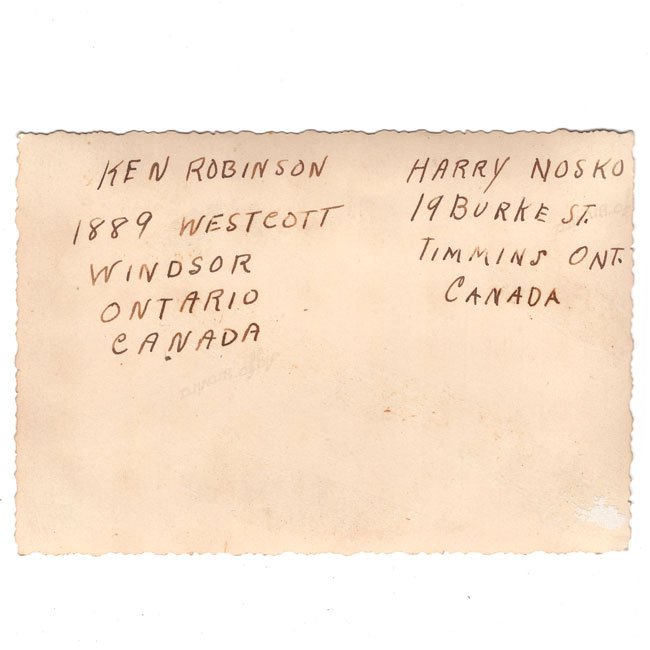 KEN ROBINSON
1889 WESTCOTT
WINDSOR
ONTARIO
CANADA
HARRY NOSKO
19 BURKE ST.
TIMMINS ONT.
CANADA